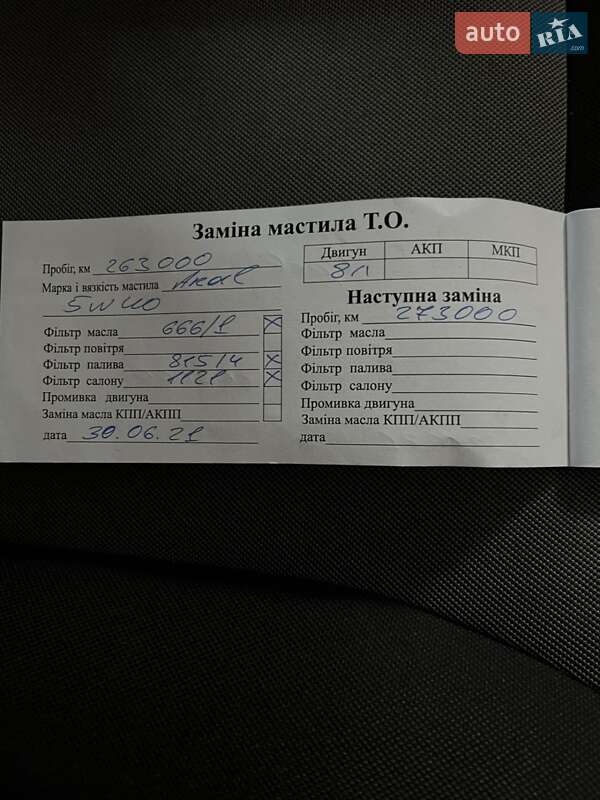 auto RIA .com
Заміна мастила Т.О.
Пробіг, км 263000
Марка і вязкість мастила
5w40
Фільтр масла 666/1 X
Фільтр повітря
Фільтр палива 815/4 X
Фільтр салону X
Промивка двигуна
Заміна масла КПП/АКПП
дата 30.06.21
Двигун АКП МКП
8л
Наступна заміна
Пробіг, км 273000
Фільтр масла
Фільтр повітря
Фільтр палива
Фільтр салону
Промивка двигуна
Заміна масла КПП/АКПП
дата